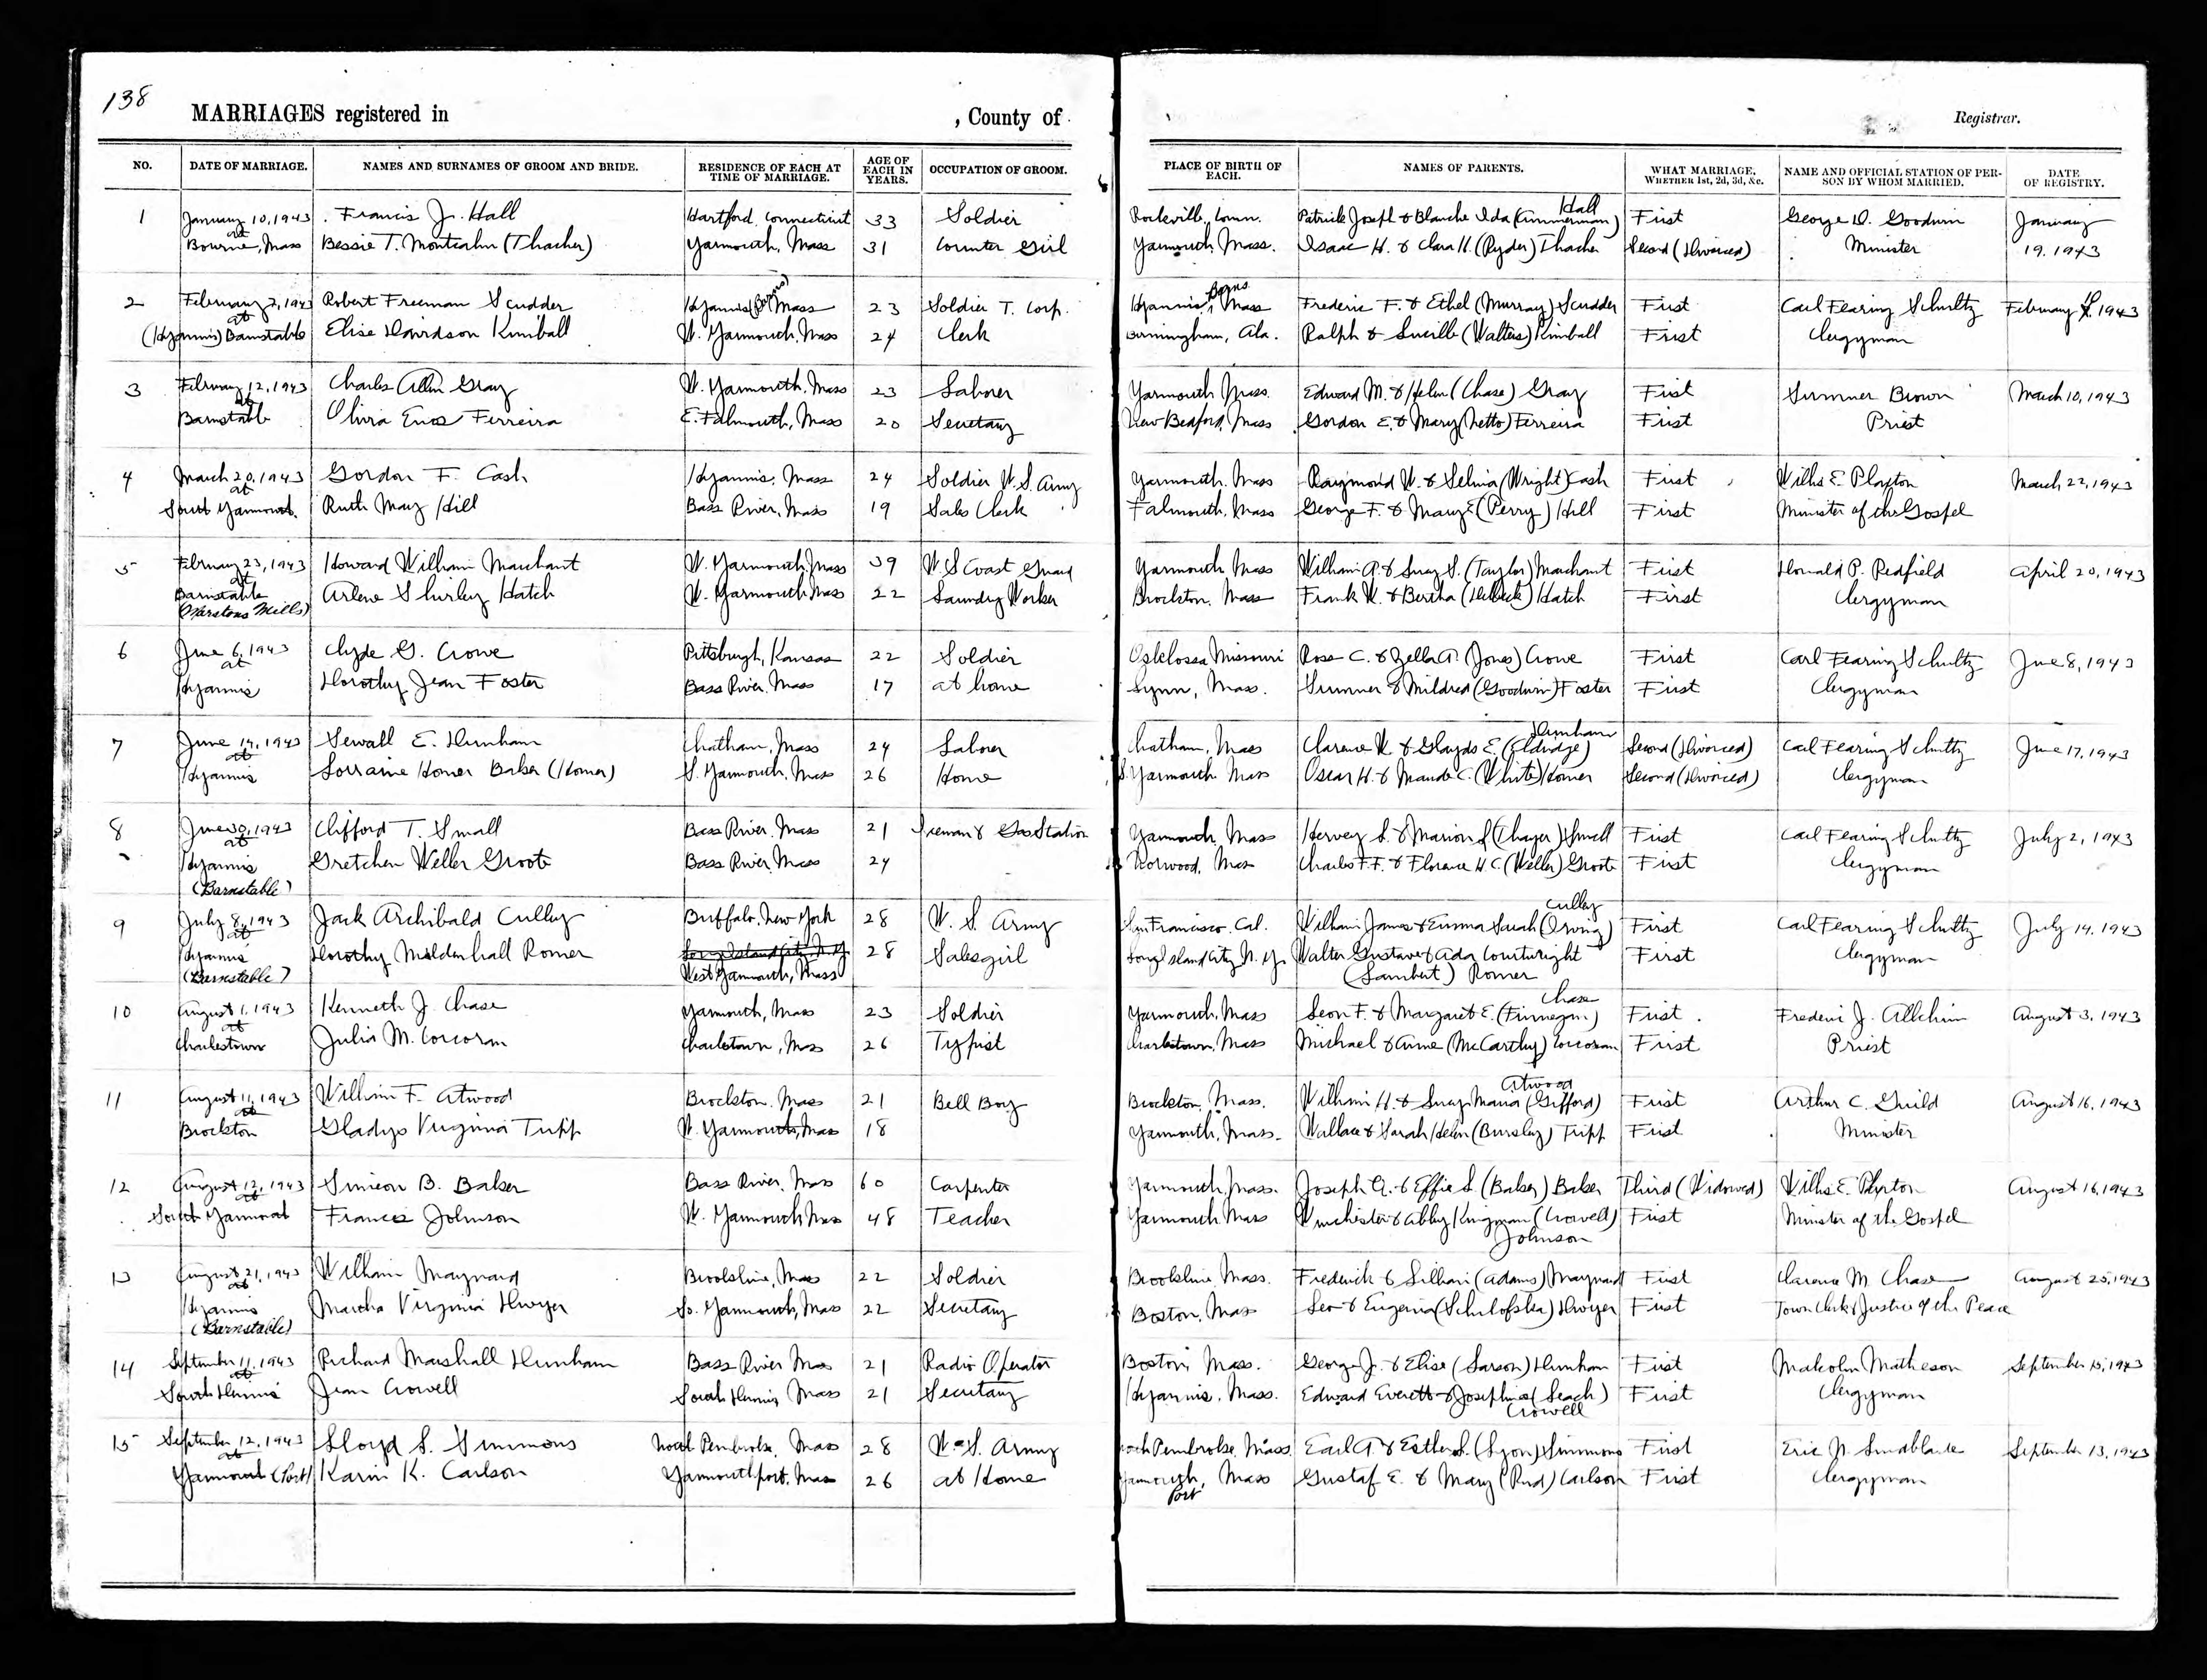 138
MARRIAGES registered in , County of Registrar.
NO. DATE OF MARRIAGE. NAMES AND SURNAMES OF GROOM AND BRIDE. RESIDENCE OF EACH AT TIME OF MARRIAGE. AGE OF EACH IN YEARS. OCCUPATION OF GROOM. PLACE OF BIRTH OF EACH. NAMES OF PARENTS. WHAT MARRIAGE. WHETHER 1st, 2d, 3d, &c. NAME AND OFFICIAL STATION OF PERSON BY WHOM MARRIED. DATE OF REGISTRY.
1 January 10, 1943 Francis J. Hall Hartford, Connecticut 33 Soldier Rockville, Conn. Patrick Joseph & Blanche Ida (Zimmerman) Hall First George D. Goodwin January
at Bourne, Mass Bessie T. Montcalm (Thacher) Yarmouth, Mass 31 Counter Girl Yarmouth, Mass. Isaac H. & Clara H. (Ryder) Thacher Second (Divorced) Minister 19, 1943
2 February 2, 1943 Robert Freeman Scudder Hyannis (Barns) Mass 23 Soldier T. Corp. Hyannis, Barns Mass Frederic F. & Ethel (Murray) Scudder First Carl Fearing Schultz February 4, 1943
at (Hyannis) Barnstable Elise Davidson Kimball W. Yarmouth, Mass 24 Clerk Birmingham, Ala. Ralph & Lucille (Walters) Kimball First Clergyman
3 February 12, 1943 Charles Allen Gray W. Yarmouth, Mass 23 Laborer Yarmouth Mass. Edward M. & Helen (Chase) Gray First Sumner Brown March 10, 1943
at Barnstable Olivia Enos Ferreira E. Falmouth, Mass 20 Secretary New Bedford, Mass Gordon E. & Mary (Netto) Ferreira First Priest
4 March 20, 1943 Gordon F. Cash Hyannis, Mass 24 Soldier U.S. Army Yarmouth, Mass Raymond W. & Selma (Wright) Cash First Willis E. Plaxton March 22, 1943
at South Yarmouth. Ruth May Hill Bass River, Mass 19 Sales Clerk Falmouth, Mass George F. & Mary E (Perry) Hill First Minister of the Gospel
5 February 23, 1943 Howard William Marchant W. Yarmouth, Mass 39 U.S Coast Guard Yarmouth Mass William A. & Lucy S. (Taylor) Marchant First Donald P. Redfield April 20, 1943
at Barnstable (Marstons Mills) Arlene Shirley Hatch W. Yarmouth Mass 22 Laundry Worker Brockton, Mass Frank W. & Bertha Hatch First Clergyman
6 June 6, 1943 Clyde G. Crowe Pittsburgh, Kansas 22 Soldier Missouri Ross C. & Zella A. (Jones) Crowe First Carl Fearing Schultz June 8, 1943
at Hyannis Dorothy Jean Foster Bass River, Mass 17 at home Lynn, Mass. Sumner & Mildred (Goodwin) Foster First Clergyman
7 June 14, 1943 Sewall E. Dunham Chatham, Mass 24 Laborer Chatham, Mass Clarence W. & Gladys E. (Eldridge) Dunham Second (Divorced) Carl Fearing Schultz June 17, 1943
at Hyannis Lorraine Homer Baker (Homer) S. Yarmouth, Mass 26 Home S. Yarmouth Mass Oscar H. & Maude C. (White) Homer Second (Divorced) Clergyman
8 June 30, 1943 Clifford T. Small Bass River, Mass 21 Gas Station Yarmouth, Mass Hervey S. & Marion L (Thayer) Small First Carl Fearing Schultz July 2, 1943
at Hyannis (Barnstable) Gretchen Weller Groote Bass River, Mass 24 Norwood, Mass Charles F.F. & Florence H.C. (Weller) Groote First Clergyman
9 July 8, 1943 Jack Archibald Culley Buffalo, New York 28 U.S. Army San Francisco, Cal. William James & Emma Sarah (Irving) Culley First Carl Fearing Schultz July 14, 1943
at Hyannis (Barnstable) Dorothy Mildenhall Romer Long Island City N.Y. West Yarmouth, Mass 28 Salesgirl Long Island City N.Y. Walter Gustave & Ada Courtwright (Lambert) Romer First Clergyman
10 August 1, 1943 Kenneth J. Chase Yarmouth, Mass 23 Soldier Yarmouth, Mass Leon F. & Margaret E. (Finnegan) Chase First Frederic J. Allchin August 3, 1943
at Charlestown Julia M. Corcoran Charlestown, Mass 26 Typist Charlestown, Mass Michael & Anne (McCarthy) Corcoran First Priest
11 August 11, 1943 William F. Atwood Brockton, Mass 21 Bell Boy Brockton, Mass. William H. & Lucy Maria (Gifford) Atwood First Arthur C. Guild August 16, 1943
at Brockton Gladys Virginia Tripp W. Yarmouth, Mass 18 Yarmouth, Mass. Wallace & Sarah Helen (Bursley) Tripp First Minister
12 August 12, 1943 Simeon B. Baker Bass River, Mass 60 Carpenter Yarmouth, Mass. Joseph A. & Effie S. (Baker) Baker Third (Widowed) Willis E. Plaxton August 16, 1943
at South Yarmouth Frances Johnson W. Yarmouth Mass 48 Teacher Yarmouth Mass Winchester & Abby Kingman (Crowell) Johnson First Minister of the Gospel
13 August 21, 1943 William Maynard Brookline, Mass 22 Soldier Brookline, Mass. Frederick & Lillian (Adams) Maynard First Clarence M. Chase August 25, 1943
at Hyannis (Barnstable) Marcha Virginia Dwyer So. Yarmouth, Mass 22 Secretary Boston, Mass Leo & Eugenia Dwyer First Town Clerk & Justice of the Peace
14 September 11, 1943 Richard Marshall Dunham Bass River Mass 21 Radio Operator Boston, Mass. George J. & Elise (Larson) Dunham First Malcolm Matheson September 15, 1943
at South Dennis Jean Crowell South Dennis, Mass 21 Secretary Hyannis, Mass. Edward Everett & Josephine (Leach) Crowell First Clergyman
15 September 12, 1943 Lloyd S. Simmons North Pembroke, Mass 28 U.S. Army North Pembroke, Mass. Earl A. & Esther S. (Lyon) Simmons First September 13, 1943
at Yarmouth (Port) Karin K. Carlson Yarmouthport, Mass 26 at Home Yarmouth, Port Mass Gustaf E. & Mary (Rud) Carlson First Clergyman